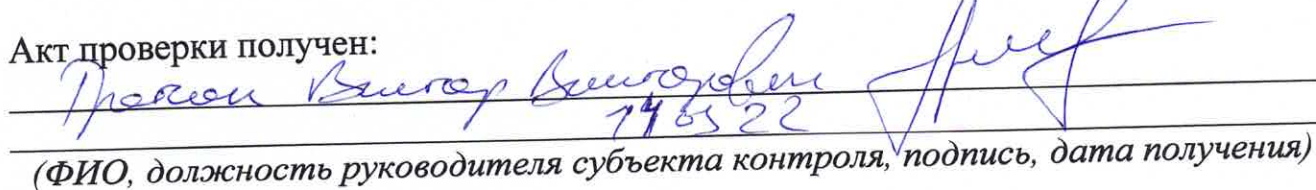 Акт проверки получен:
Виктор Викторович
14 03 22
(ФИО, должность руководителя субъекта контроля, подпись, дата получения)